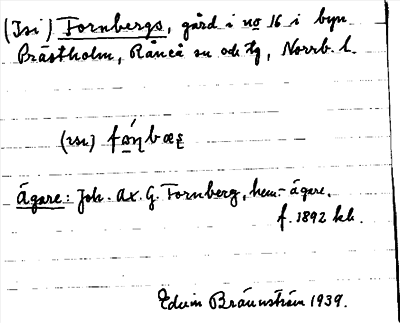 (Isi) Tornbergs, gård i no 16 i byn
Prästholm, Råneå sn och tg, Norrb. l.
Ägare: Joh. Ax. G. Tornberg, hem.-ägare,
f. 1892 kb.
Edvin Brännström 1939.